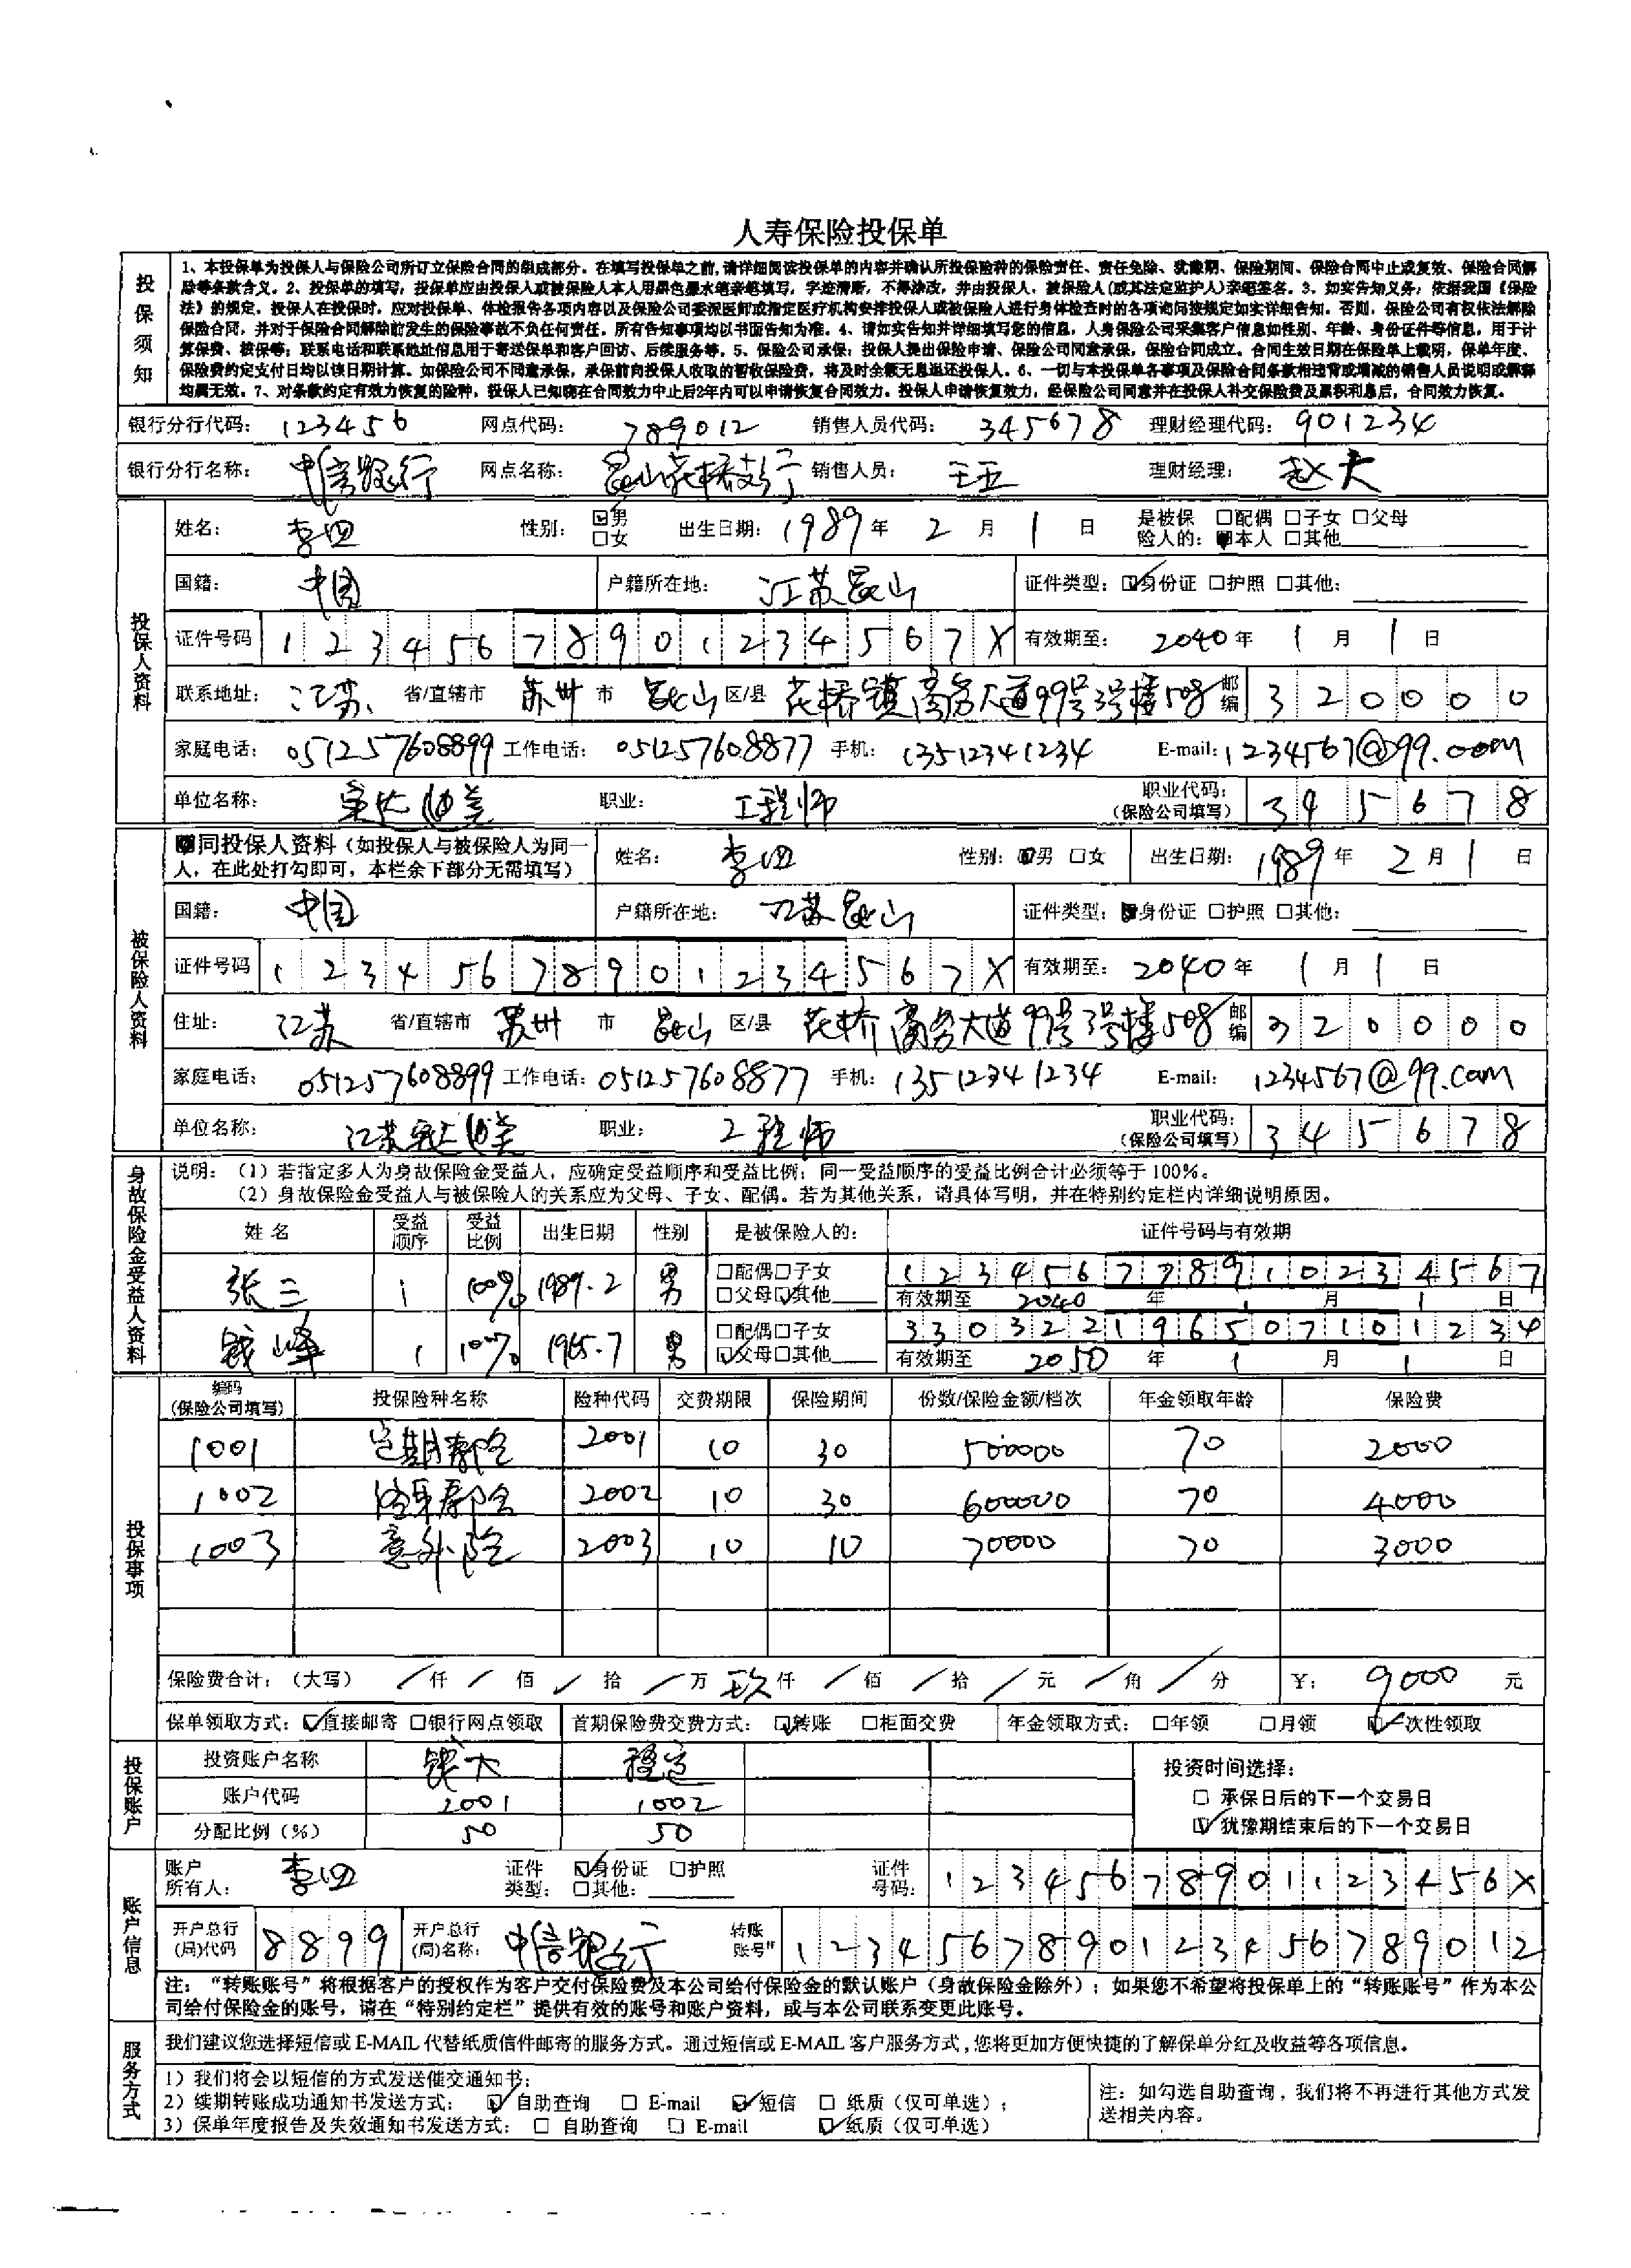 人寿保险投保单
投保须知
1、本投保单为投保人与保险公司所订立保险合同的组成部分。在填写投保单之前,请详细阅读投保单的内容并确认所投保险种的保险责任、责任免除、犹豫期、保险期间、保险合同中止或复效、保险合同解
除等条款含义。2、投保单的填写:投保单应由投保人或被保险人本人用黑色墨水笔亲笔填写,字迹清晰,不得涂改,并由投保人、被保险人(或其法定监护人)亲笔签名。3、如实告知义务:依据我国《保险
法》的规定,投保人在投保时,应对投保单、体检报告各项内容以及保险公司委派医师或指定医疗机构安排投保人或被保险人进行身体检查时的各项询问按规定如实详细告知。否则,保险公司有权依法解除
保险合同,并对于保险合同解除前发生的保险事故不负任何责任。所有告知事项均以书面告知为准。4、请如实告知并详细填写您的信息,人身保险公司采集客户信息如性别、年龄、身份证件等信息,用于计
算保费、核保等;联系电话和联系地址信息用于寄送保单和客户回访、后续服务等。5、保险公司承保:投保人提出保险申请、保险公司同意承保,保险合同成立。合同生效日期在保险单上载明,保单年度、
保险费约定支付日均以该日期计算。如保险公司不同意承保,承保前向投保人收取的暂收保险费,将及时余额无息退还投保人。6、一切与本投保单各事项及保险合同条款相违背或增减的销售人员说明或解释
均属无效。7、对条款约定有效力恢复的险种,投保人已知晓在合同效力中止后2年内可以申请恢复合同效力。投保人申请恢复效力,经保险公司同意并在投保人补交保险费及累积利息后,合同效力恢复。
银行分行代码: 123456 网点代码: 789012 销售人员代码: 345678 理财经理代码: 901234
银行分行名称: 中信银行 网点名称: 昆山花桥支行 销售人员: 王五 理财经理: 赵大
投保人资料
姓名: 李四 性别: ☑男 □女 出生日期: 1989年 2月 1日 是被保险人的: □配偶 □子女 □父母 ☑本人 □其他
国籍: 中国 户籍所在地: 江苏昆山 证件类型: ☑身份证 □护照 □其他:
证件号码 12345678901234567X 有效期至: 2040年 1月 1日
联系地址: 江苏 省/直辖市 苏州 市 昆山 区/县 花桥镇商务大道99号3号楼508 邮编 320000
家庭电话: 051257608899 工作电话: 051257608877 手机: 13512341234 E-mail: 1234567@99.com
单位名称: 职业: 工程师 职业代码:(保险公司填写) 345678
被保险人资料
☑同投保人资料(如投保人与被保险人为同一人,在此处打勾即可,本栏余下部分无需填写) 姓名: 李四 性别: ☑男 □女 出生日期: 1989年 2月 1日
国籍: 中国 户籍所在地: 江苏昆山 证件类型: ☑身份证 □护照 □其他:
证件号码 12345678901234567X 有效期至: 2040年 1月 1日
住址: 江苏 省/直辖市 苏州 市 昆山 区/县 花桥商务大道99号3号楼508 邮编 320000
家庭电话: 051257608899 工作电话: 051257608877 手机: 13512341234 E-mail: 1234567@99.com
单位名称: 江苏 职业: 工程师 职业代码:(保险公司填写) 345678
身故保险金受益人资料
说明:(1)若指定多人为身故保险金受益人,应确定受益顺序和受益比例;同一受益顺序的受益比例合计必须等于100%。
(2)身故保险金受益人与被保险人的关系应为父母、子女、配偶。若为其他关系,请具体写明,并在特别约定栏内详细说明原因。
姓名 受益顺序 受益比例 出生日期 性别 是被保险人的: 证件号码与有效期
张三 1 100% 1989.2 男 □配偶□子女 □父母☑其他 123456778910234567
有效期至 2040 年 1 月 1 日
钱峰 1 100% 1965.7 男 □配偶□子女 ☑父母□其他 330322196507101234
有效期至 2050 年 1 月 1 日
投保事项
编码(保险公司填写) 投保险种名称 险种代码 交费期限 保险期间 份数/保险金额/档次 年金领取年龄 保险费
1001 定期寿险 2001 10 30 500000 70 2000
1002 寿险 2002 10 30 600000 70 4000
1003 意外险 2003 10 10 70000 70 3000
保险费合计:(大写) / 仟 / 佰 / 拾 / 万 玖 仟 / 佰 / 拾 / 元 / 角 / 分 ¥: 9000 元
保单领取方式: ☑直接邮寄 □银行网点领取 首期保险费交费方式: ☑转账 □柜面交费 年金领取方式: □年领 □月领 ☑一次性领取
投保账户
投资账户名称 钱大 稳定
账户代码 2001 1002
分配比例(%) 50 50
投资时间选择:
□ 承保日后的下一个交易日
☑ 犹豫期结束后的下一个交易日
账户信息
账户所有人: 李四 证件类型: ☑身份证 □护照 □其他: 证件号码: 12345678901123456X
开户总行(局)代码 8899 开户总行(局)名称: 中信银行 转账账号 1234567890123456789012
注:“转账账号”将根据客户的授权作为客户交付保险费及本公司给付保险金的默认账户(身故保险金除外);如果您不希望将投保单上的“转账账号”作为本公
司给付保险金的账号,请在“特别约定栏”提供有效的账号和账户资料,或与本公司联系变更此账号。
服务方式
我们建议您选择短信或E-MAIL代替纸质信件邮寄的服务方式。通过短信或E-MAIL客户服务方式,您将更加方便快捷的了解保单分红及收益等各项信息。
1)我们将会以短信的方式发送催交通知书;
2)续期转账成功通知书发送方式: ☑自助查询 □ E-mail ☑短信 □ 纸质(仅可单选);
3)保单年度报告及失效通知书发送方式: □ 自助查询 □ E-mail ☑纸质(仅可单选)
注:如勾选自助查询,我们将不再进行其他方式发
送相关内容。